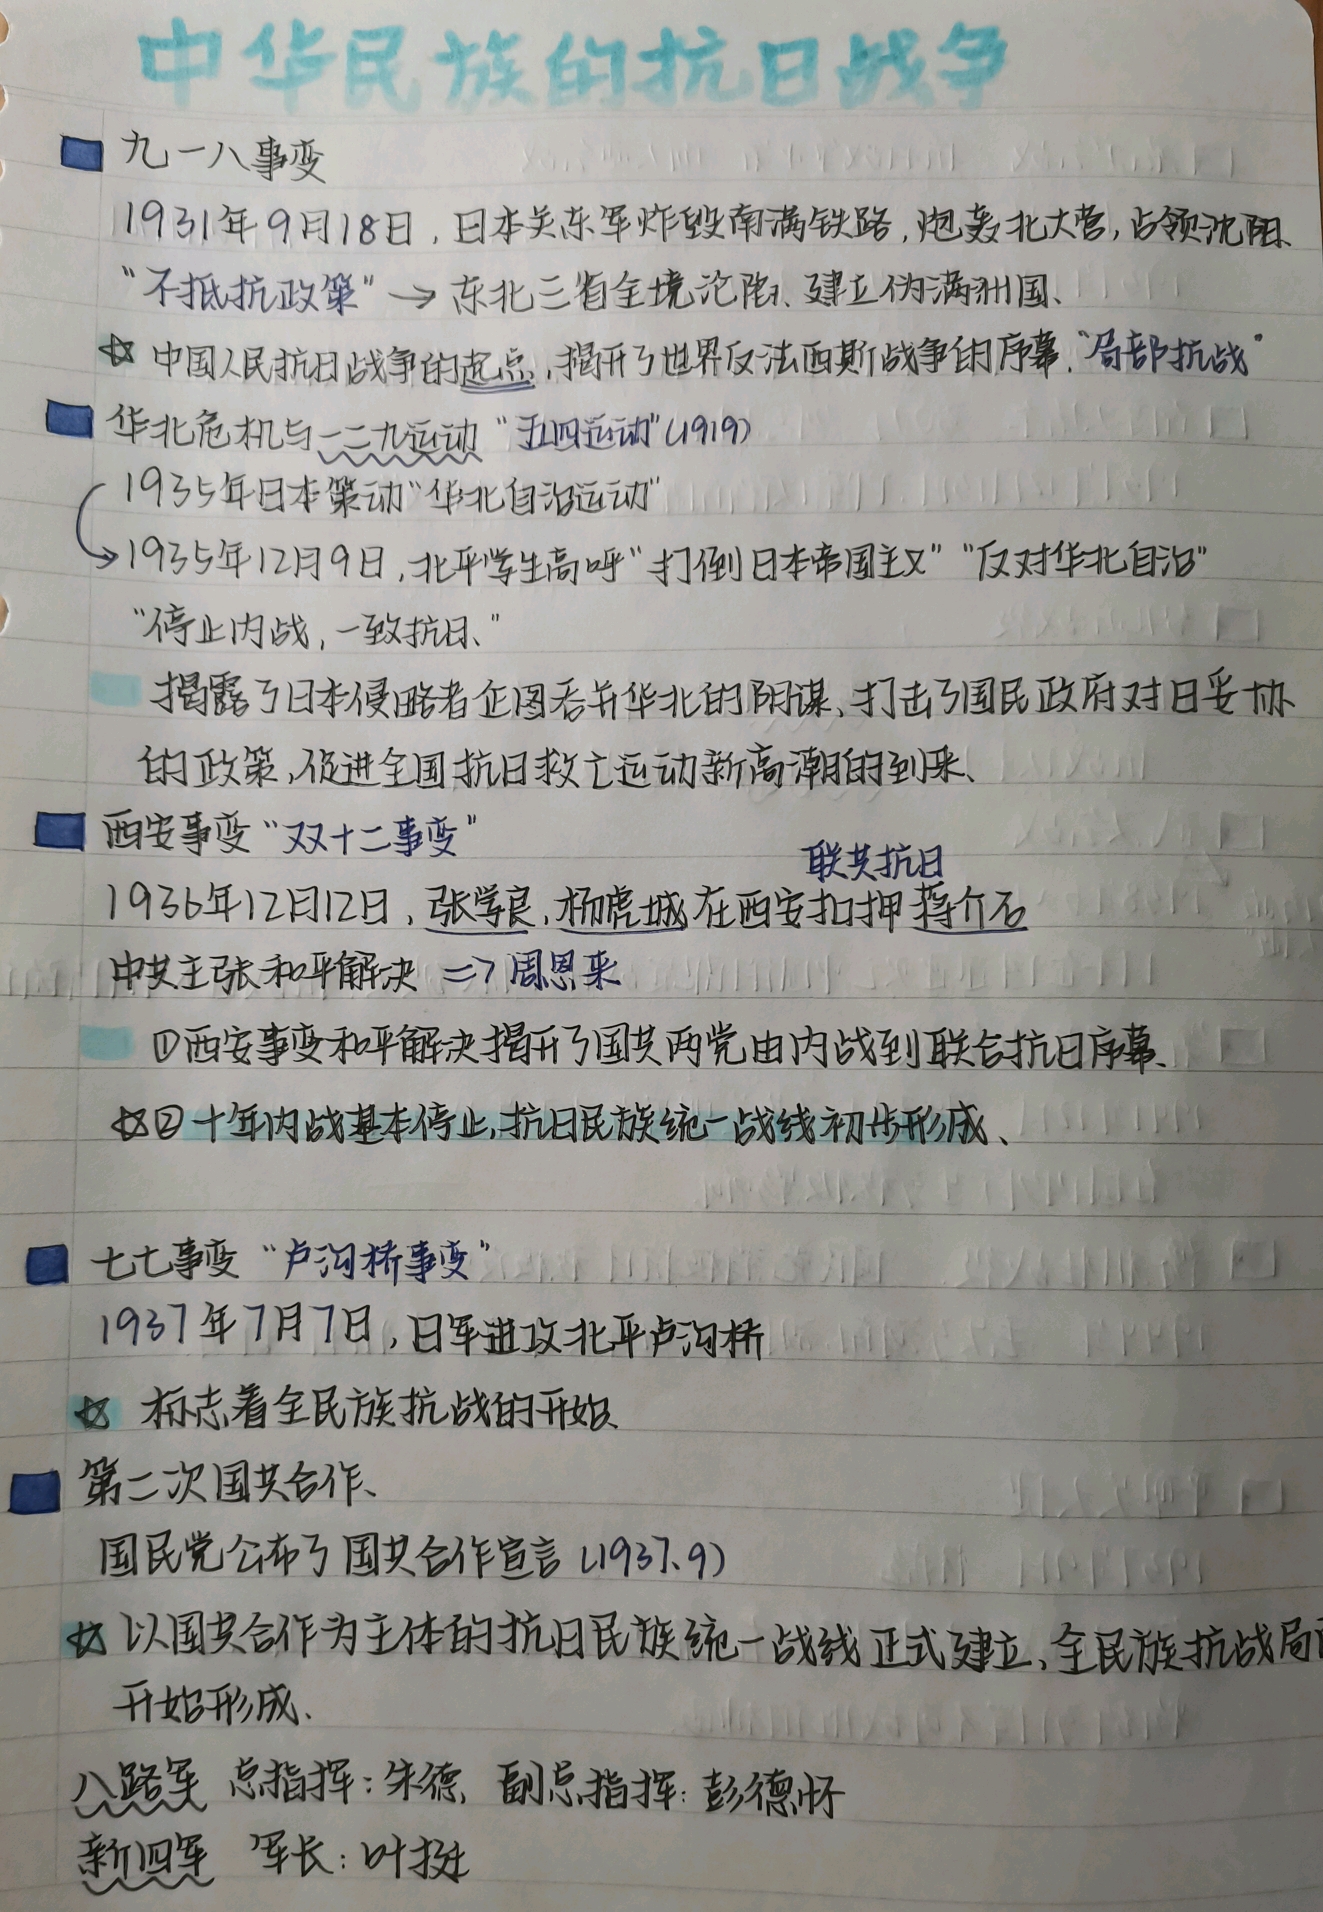 中华民族的抗日战争
九一八事变
1931年9月18日,日本关东军炸毁南满铁路,炮轰北大营,占领沈阳、
“不抵抗政策”→东北三省全境沦陷、建立伪满洲国、
☆中国人民抗日战争的起点,揭开了世界反法西斯战争的序幕.“局部抗战”
华北危机与一二九运动“五四运动”(1919)
1935年日本策动“华北自治运动”
1935年12月9日,北平学生高呼“打倒日本帝国主义”“反对华北自治”
“停止内战,一致抗日、”
揭露了日本侵略者企图吞并华北的阴谋、打击了国民政府对日妥协
的政策,促进全国抗日救亡运动新高潮的到来、
西安事变“双十二事变”
联共抗日
1936年12月12日,张学良,杨虎城在西安扣押蒋介石
中共主张和平解决=>周恩来
①西安事变和平解决揭开了国共两党由内战到联合抗日序幕、
☆②十年内战基本停止,抗日民族统一战线初步形成、
七七事变“卢沟桥事变”
1937年7月7日,日军进攻北平卢沟桥
☆标志着全民族抗战的开始、
第二次国共合作、
国民党公布了国共合作宣言(1937.9)
☆以国共合作为主体的抗日民族统一战线正式建立,全民族抗战局
开始形成、
八路军 总指挥:朱德, 副总指挥:彭德怀
新四军 军长:叶挺